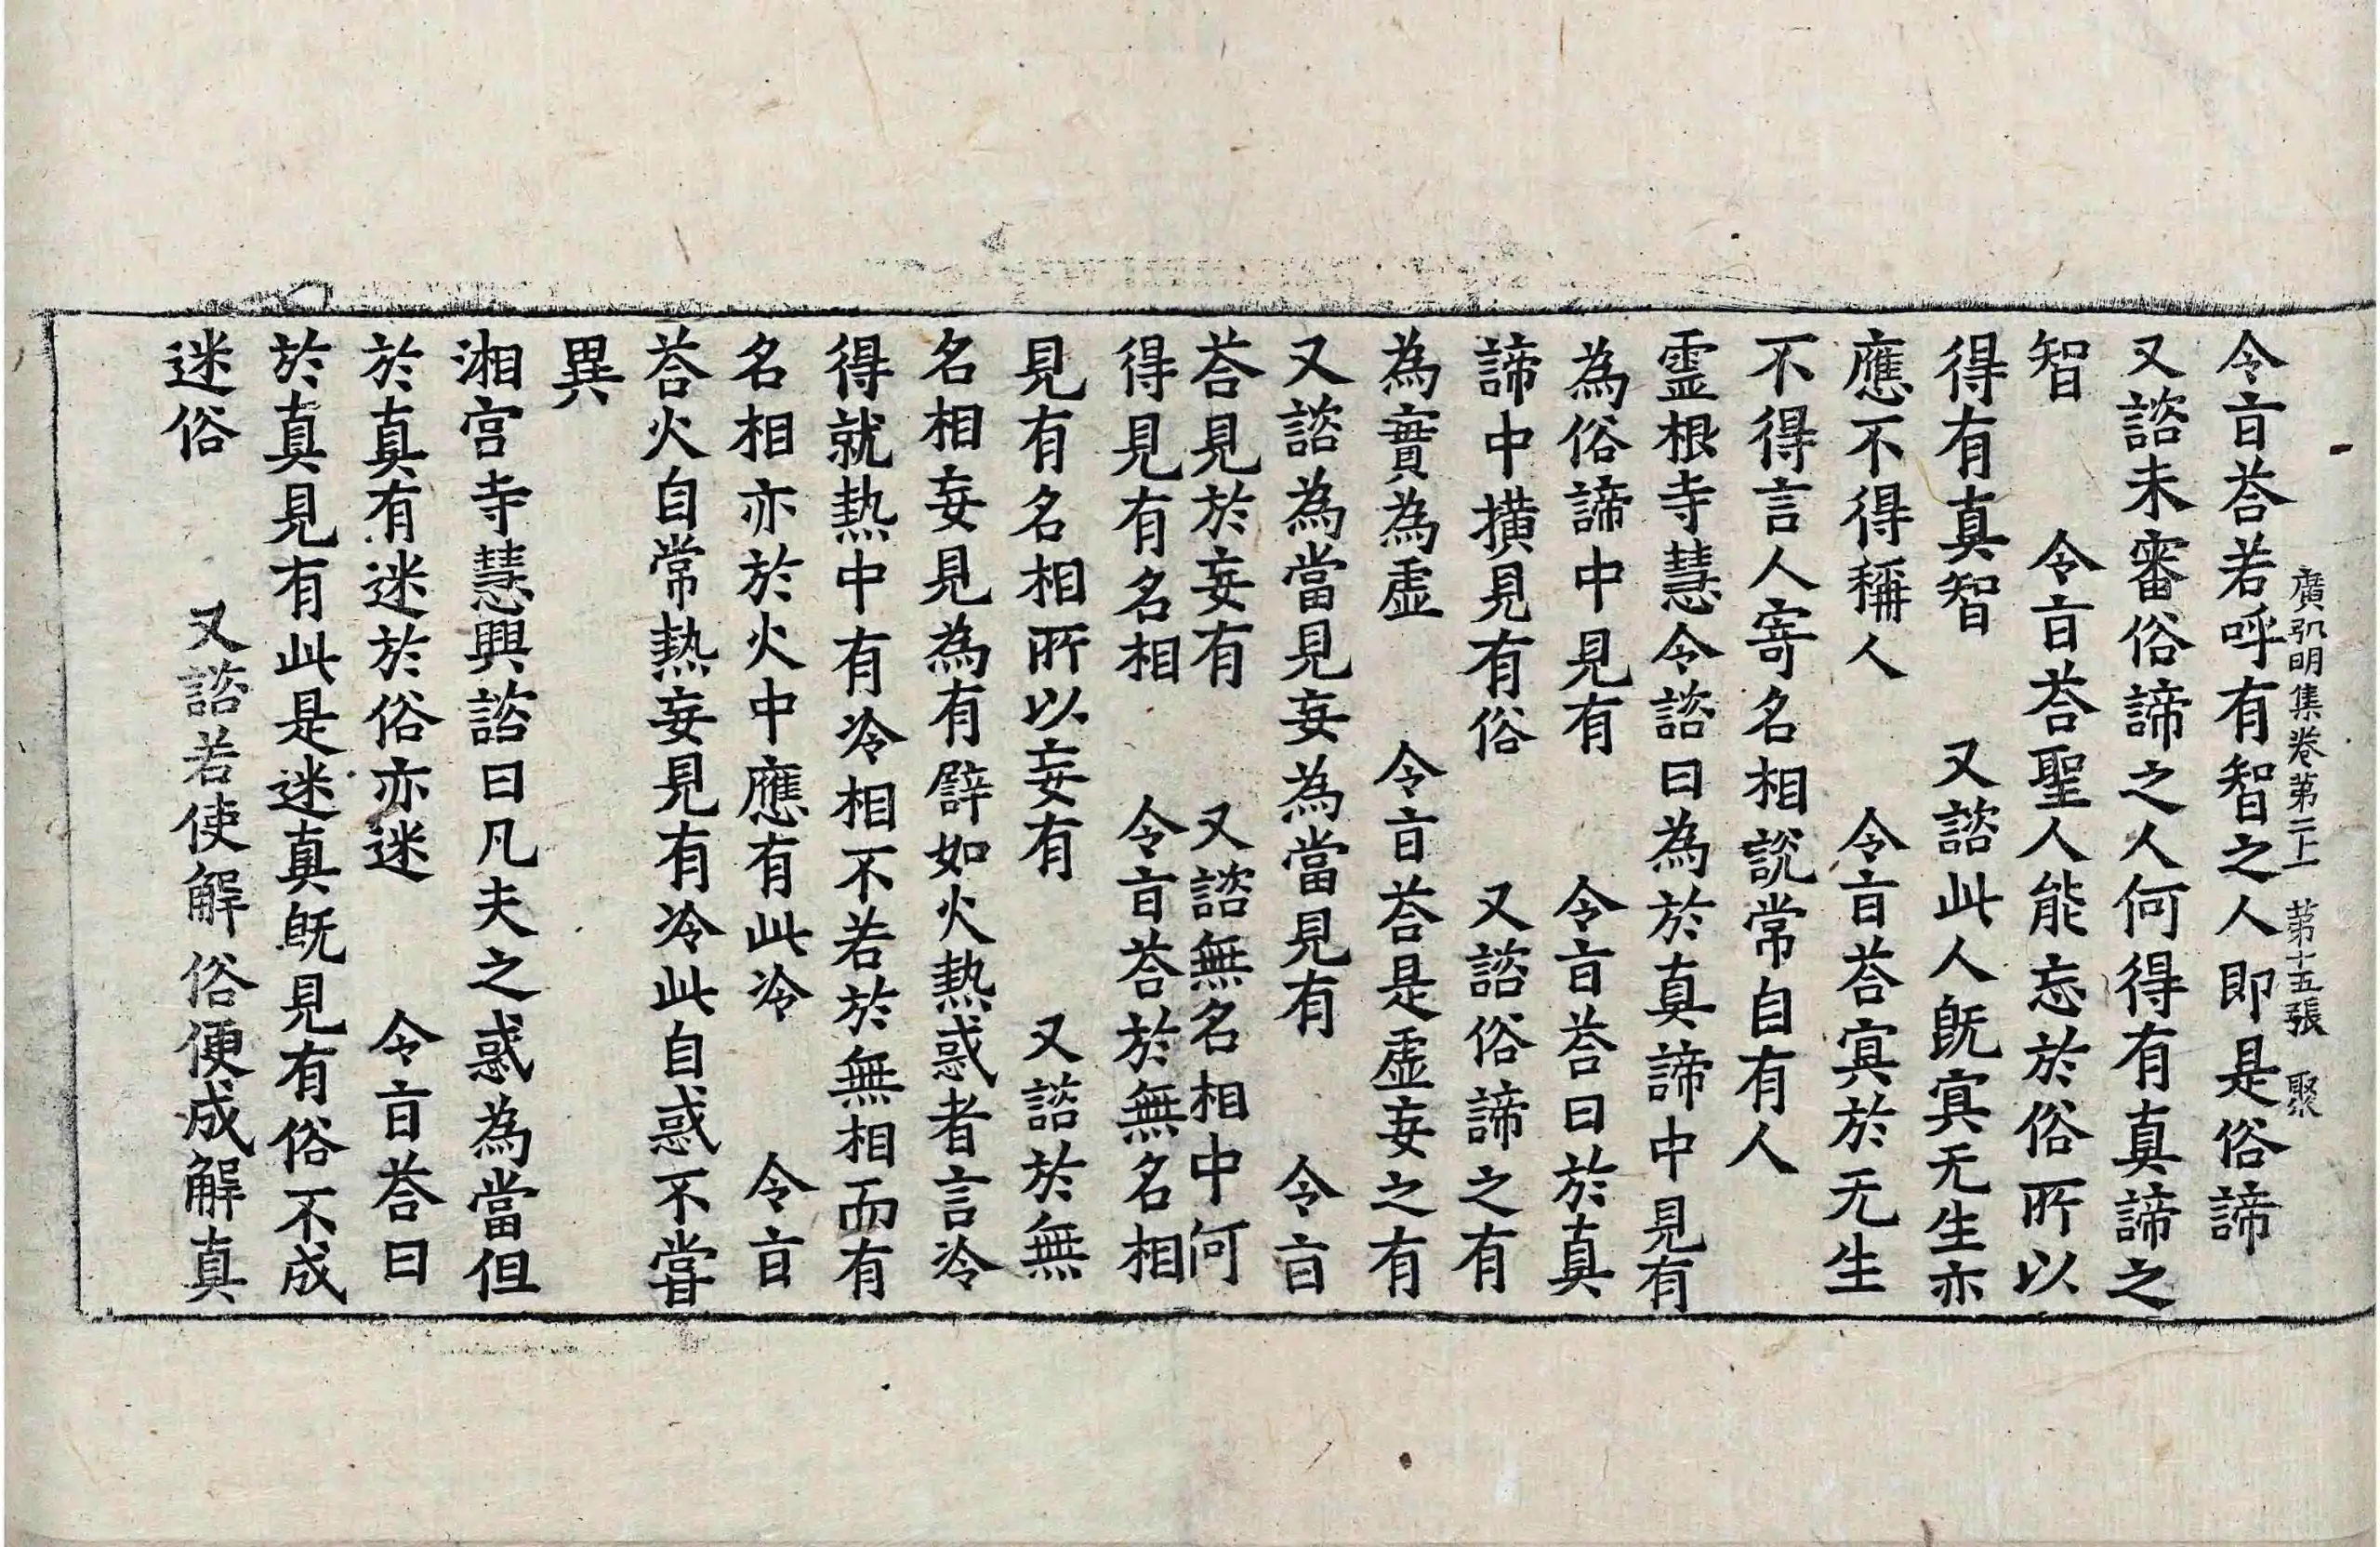 令㫖荅若呼有智之人即是俗諦
廣弘明集卷第二上　第十五張　聚
又諮未審俗諦之人何得有真諦之
智　令㫖荅聖人能忘於俗所以
得有真智　又諮此人既寘无生亦
應不得稱人　令㫖荅寘於无生
不得言人寄名相說常自有人
靈根寺慧令諮曰為於真諦中見有
為俗諦中見有　令㫖荅曰於真
諦中撗見有俗　又諮俗諦之有
為實為虛　令㫖荅是虛妄之有
又諮為當見妄為當見有　令㫖
荅見於妄有　又諮無名相中何
得見有名相　令㫖荅於無名相
見有名相所以妄有　又諮於無
名相妄見為有譬如火熱惑者言冷
得就熱中有冷相不若於無相而有
名相亦於火中應有此冷　令㫖
荅火自常熱妄見有冷此自惑不嘗
異
湘宮寺慧興諮曰凡夫之惑為當但
於真有迷於俗亦迷　令㫖荅曰
於真見有此是迷真既見有俗不成
迷俗　又諮若使解俗便成解真